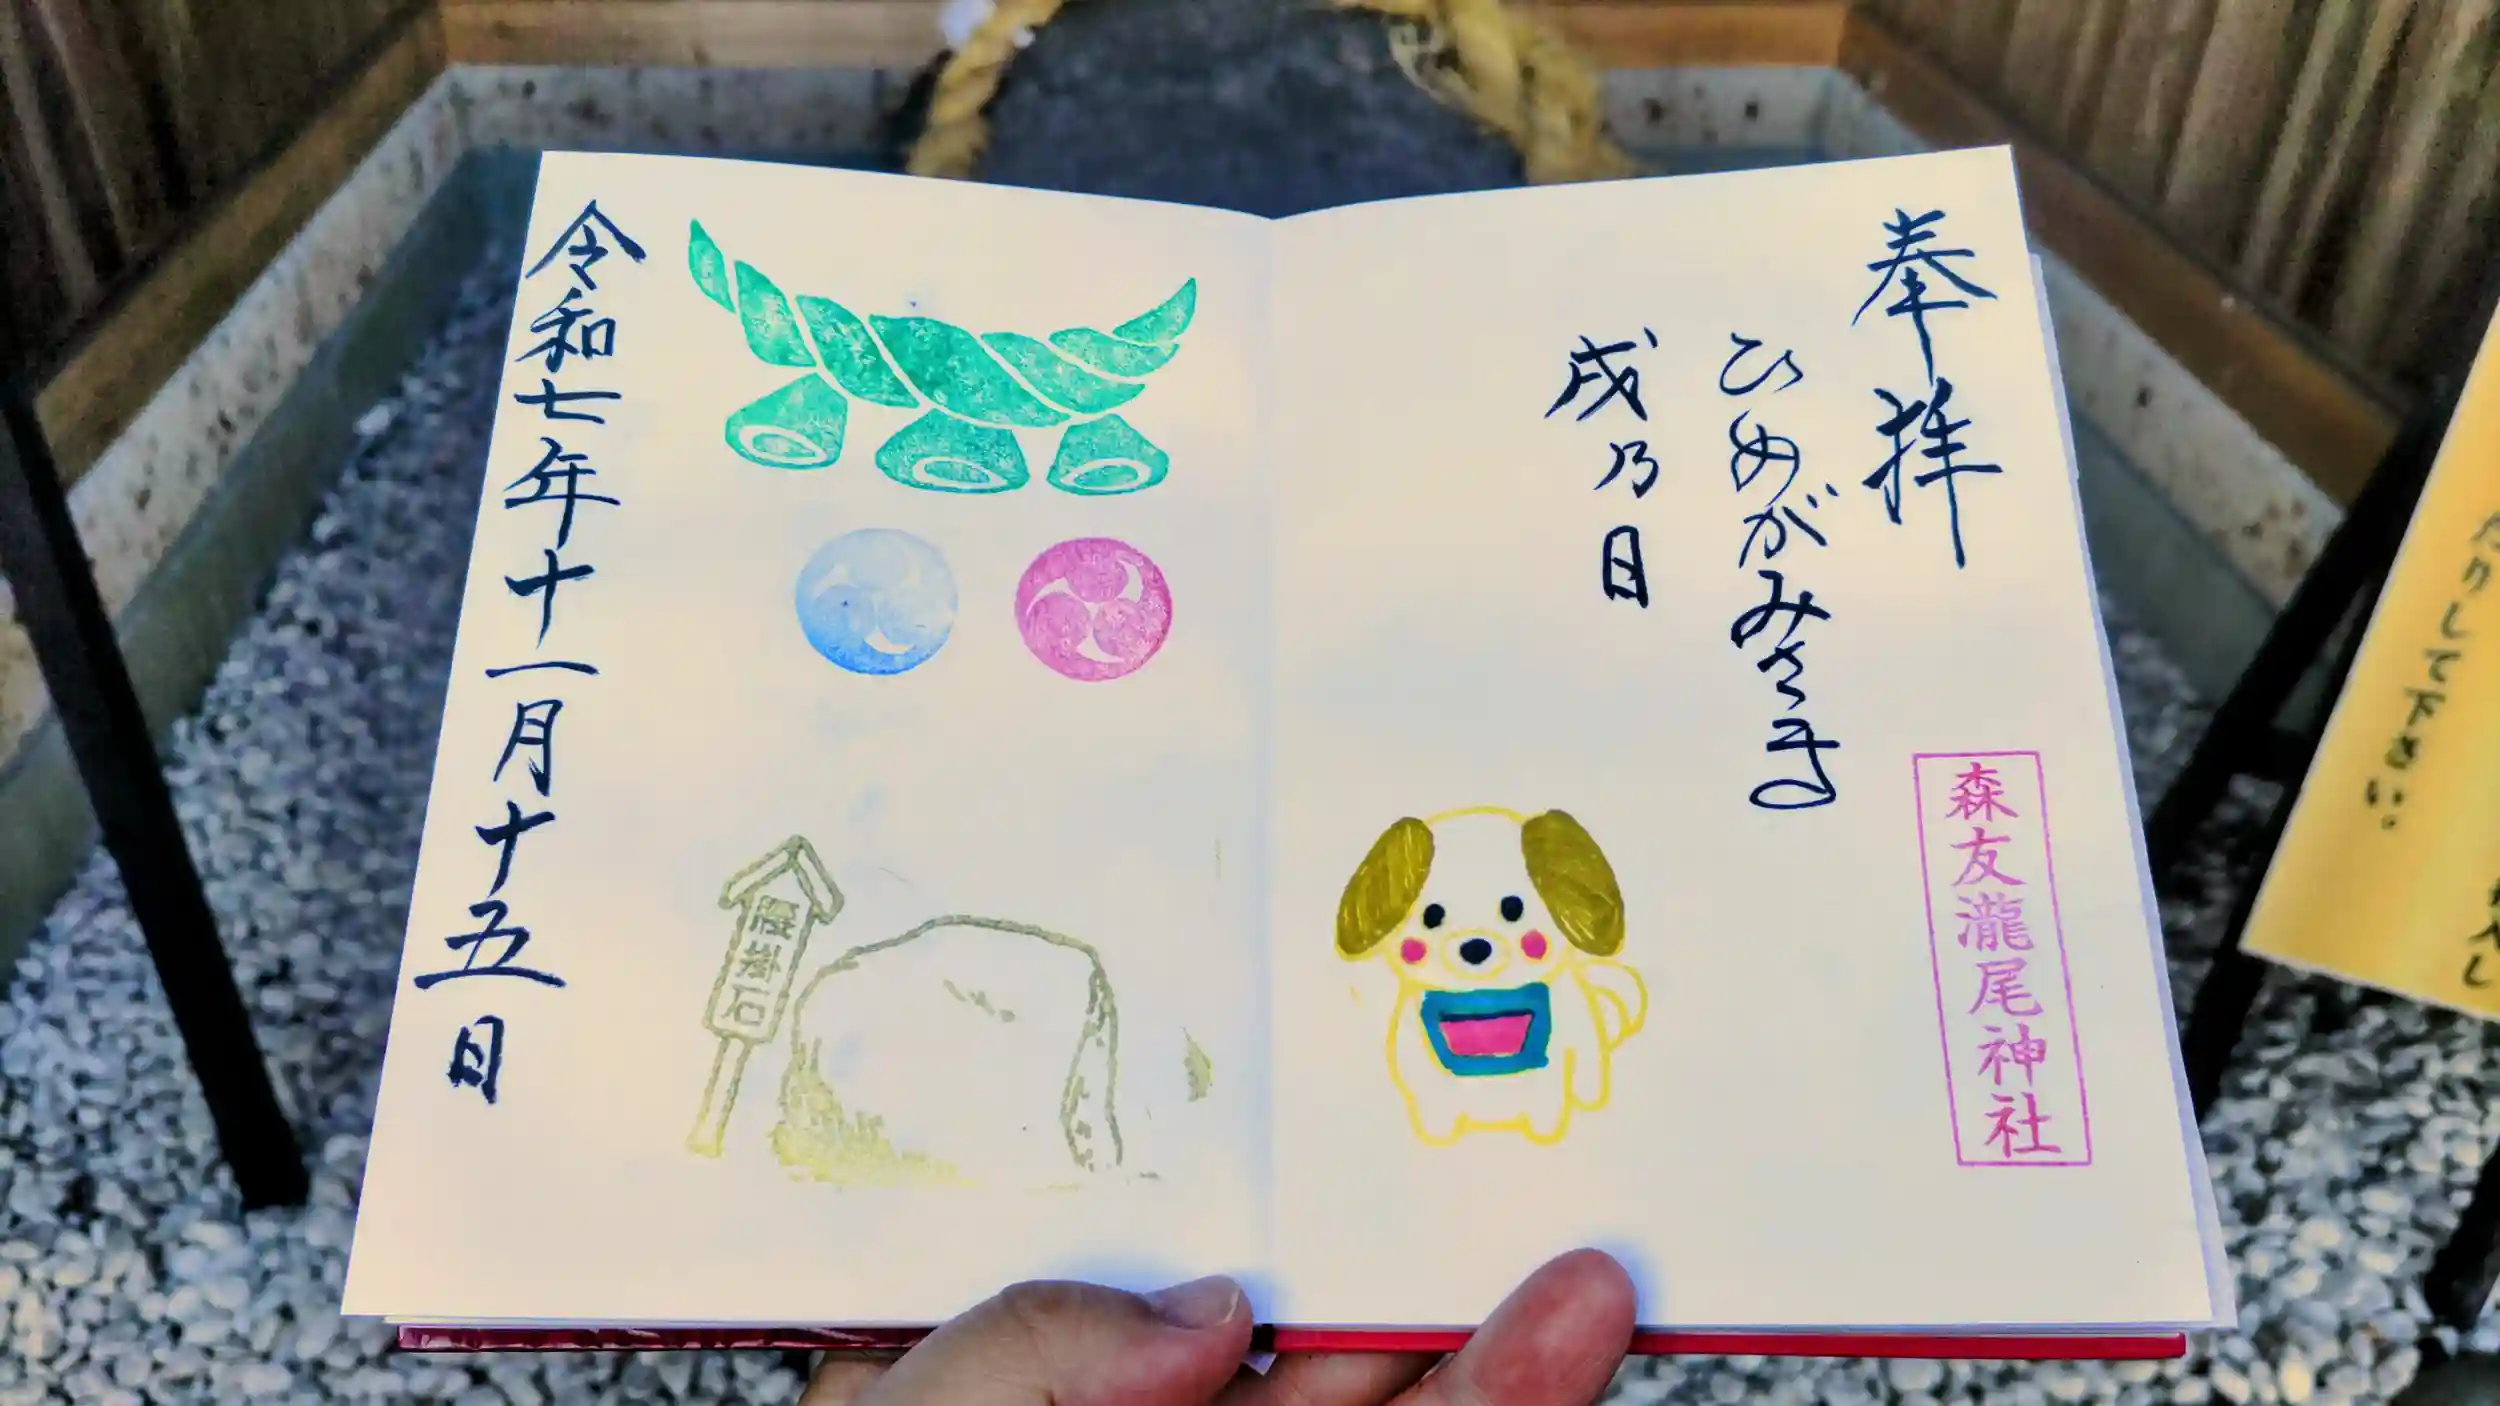 奉拝
ひめがみさま
戌乃日
森友瀧尾神社
腰掛石
令和七年十一月十五日
して下さい。